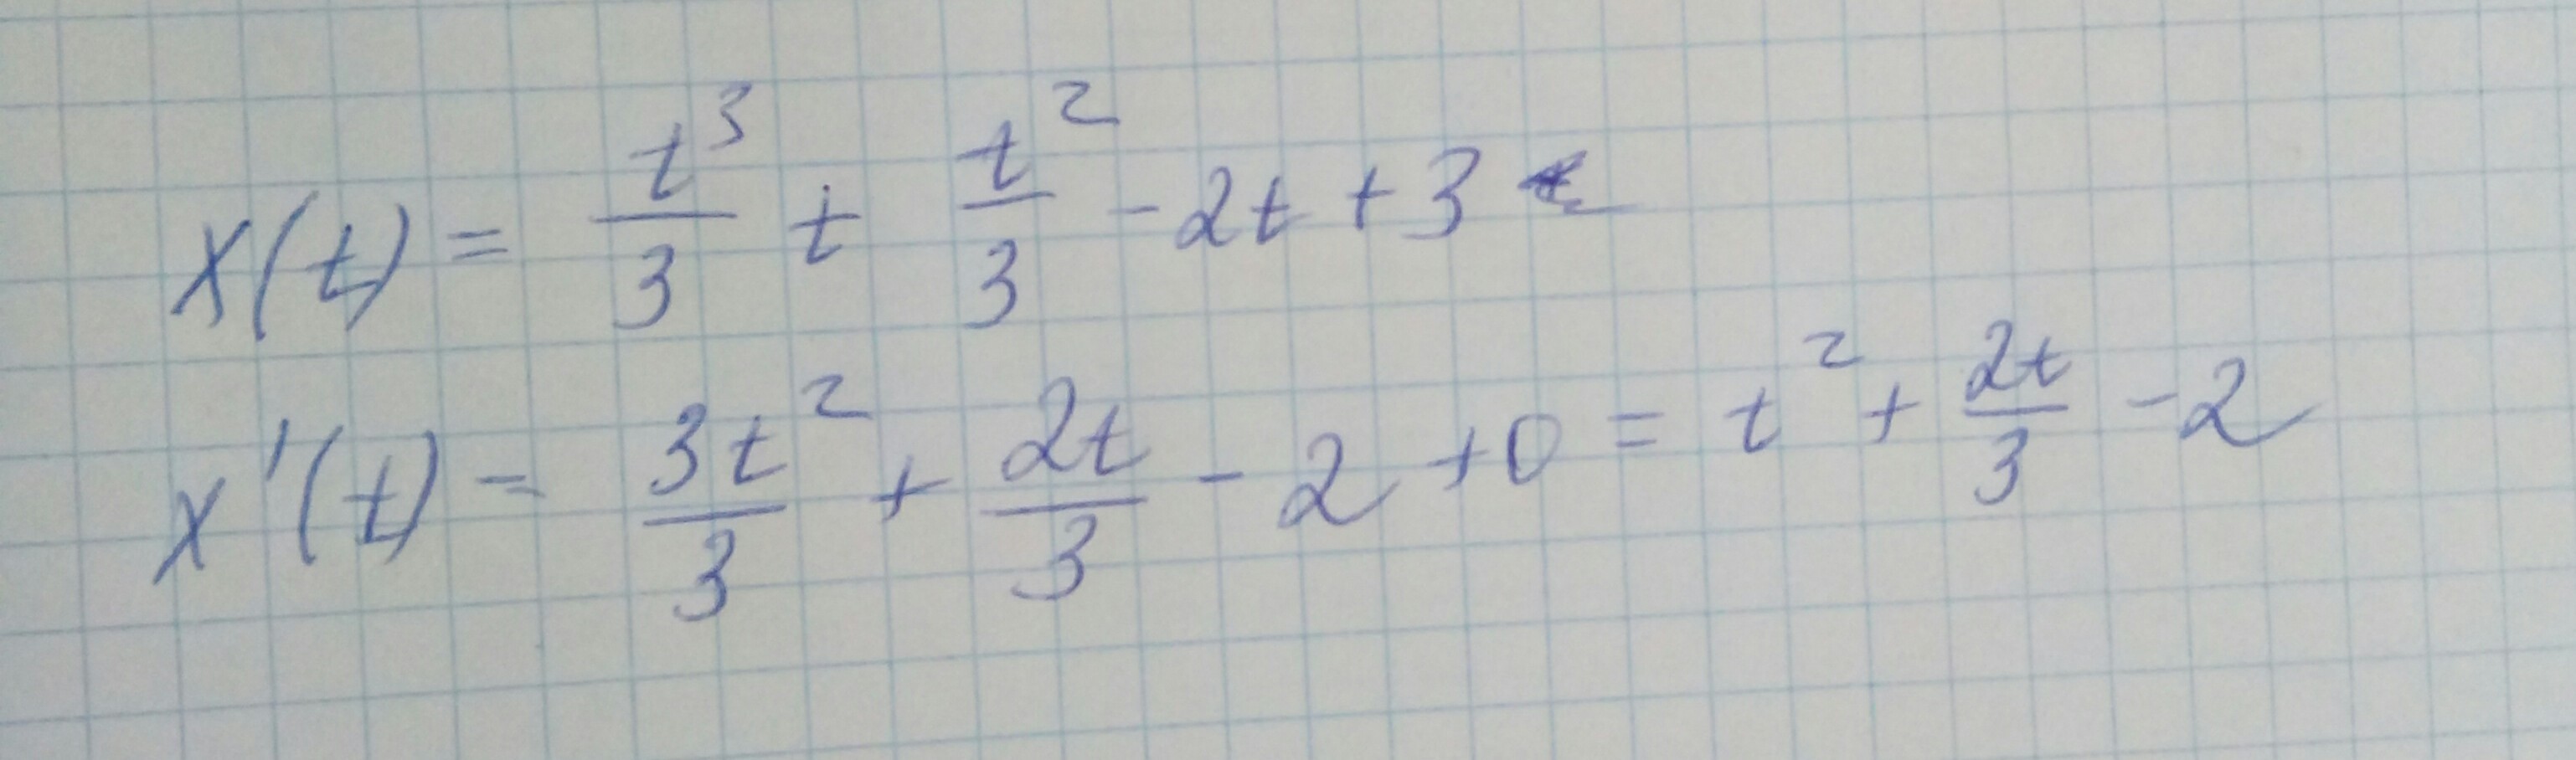 x(t) = t³/3 + t²/3 - 2t + 3
x'(t) = 3t²/3 + 2t/3 - 2 + 0 = t² + 2t/3 - 2